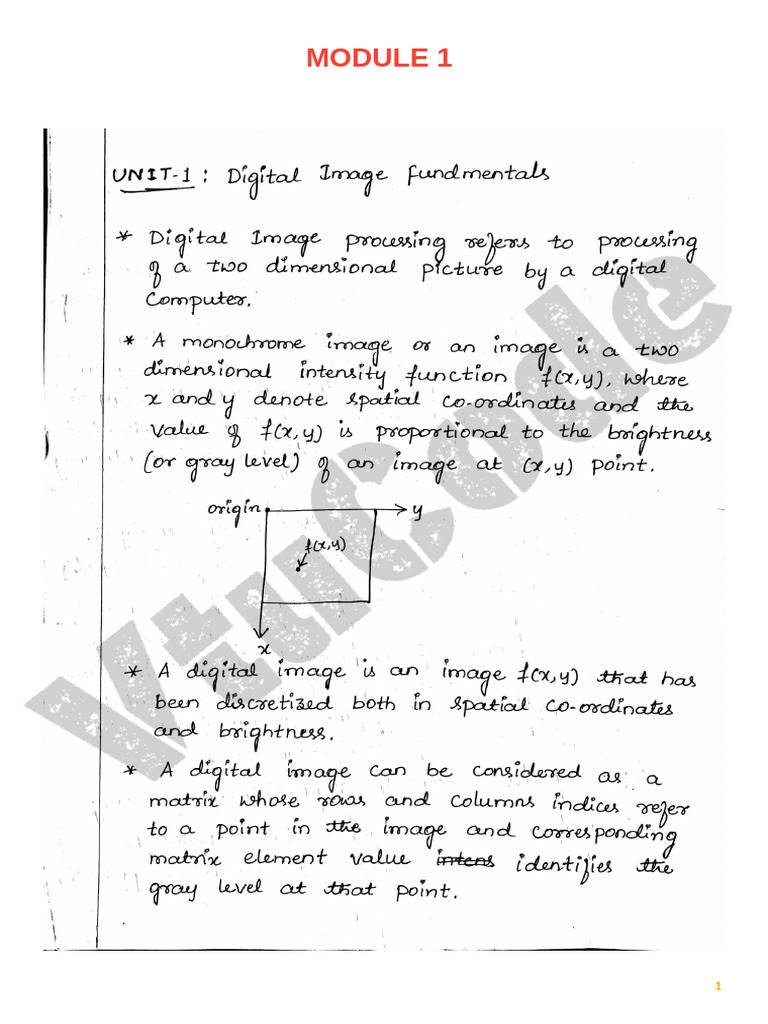 MODULE 1
UNIT-1 : Digital Image Fundmentals
* Digital Image processing refers to processing
of a two dimensional picture by a digital
Computer.
* A monochrome image or an image is a two
dimensional intensity function f(x,y), where
x and y denote spatial co-ordinates and the
value of f(x,y) is proportional to the brightness
(or gray level) of an image at (x,y) point.
origin y
f(x,y)
x
* A digital image is an image f(x,y) that has
been discretized both in spatial co-ordinates
and brightness.
* A digital image can be considered as a
matrix whose rows and columns indices refer
to a point in the image and corresponding
matrix element value intens identifies the
gray level at that point.
VtuCode
1